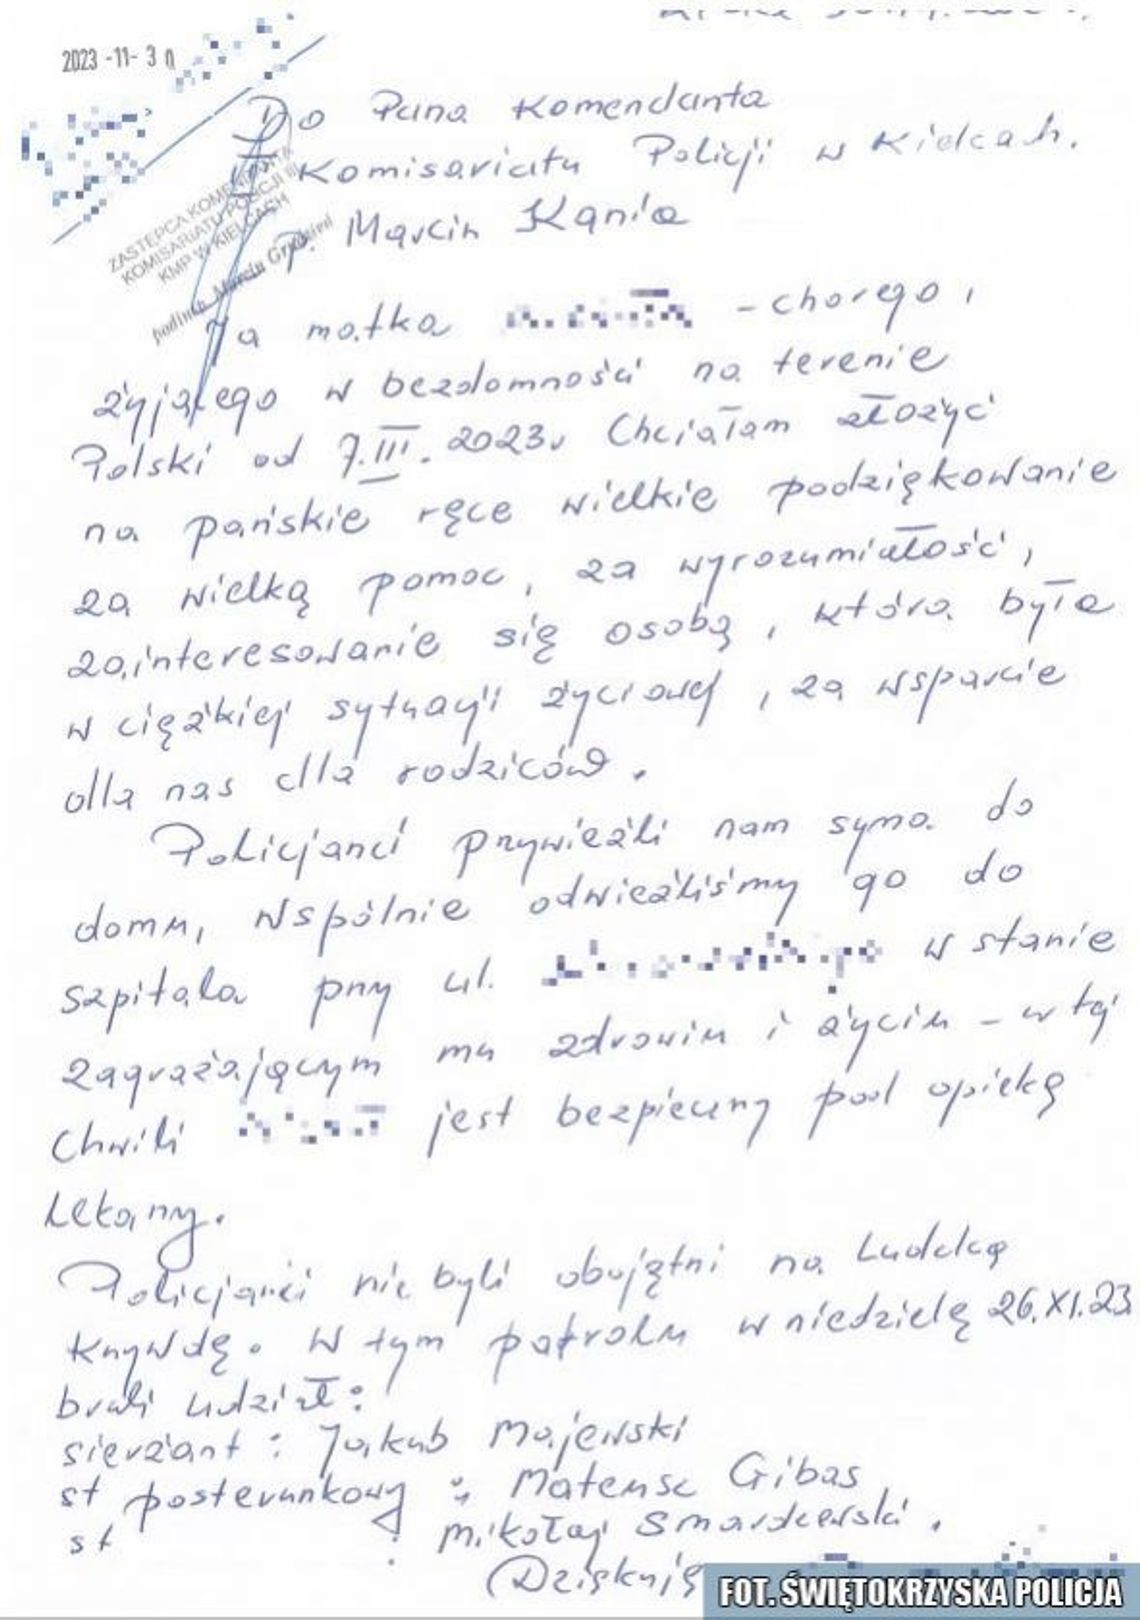 2023 -11- 30
Do Pana Komendanta
Komisariatu Policji w Kielcach.
P. Marcin Kania
ZASTĘPCA KOMENDANTA
KOMISARIATU POLICJI III
KMP W KIELCACH
Marcin
Ja matka - chorego,
żyjącego w bezdomności na terenie
Polski od 7.III. 2023r Chciałam złożyć
na pańskie ręce wielkie podziękowanie
za wielką pomoc, za wyrozumiałość,
zainteresowanie się osobą, która była
w ciężkiej sytuacji życiowej, za wsparcie
dla nas dla rodziców.
Policjanci przywieźli nam syna do
domu, wspólnie odwieźliśmy go do
szpitala przy ul. w stanie
zagrażającym mu zdrowiu i życiu - w tej
chwili jest bezpieczny pod opieką
lekarzy.
Policjanci nie byli obojętni na ludzką
krzywdę. W tym patrolu w niedzielę 26.XI.23
brali udział:
sierżant : Jakub Majewski
st posterunkowy : Mateusz Gibas
st : Mikołaj Smardzewski.
Dziękuję
FOT. ŚWIĘTOKRZYSKA POLICJA